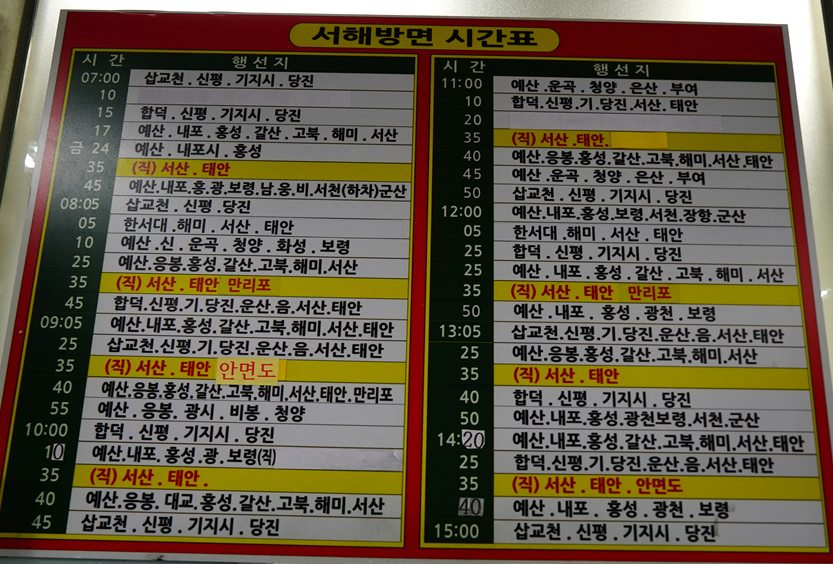 서해방면 시간표
시 간 행선지
07:00 삽교천 . 신평 . 기지시 . 당진
10
15 합덕 . 신평 . 기지시 . 당진
17 예산 . 내포 . 홍성 . 갈산 . 고북 . 해미 . 서산
금 24 예산 . 내포시 . 홍성
35 (직) 서산 . 태안
45 예산.내포.홍.광.보령.남.웅.비.서천(하차)군산
08:05 삽교천 . 신평 .당진
05 한서대 .해미 . 서산 . 태안
10 예산 . 신 . 운곡 . 청양 . 화성 . 보령
25 예산.응봉.홍성.갈산.고북.해미.서산
35 (직) 서산 . 태안 만리포
45 합덕.신평.기.당진.운산.음.서산.태안
09:05 예산.내포.홍성.갈산.고북.해미.서산.태안
25 삽교천.신평.기.당진.운산.음.서산.태안
35 (직) 서산 . 태안 안면도
40 예산.응봉.홍성.갈산.고북.해미.서산.태안.만리포
55 예산 . 응봉 . 광시 . 비봉 . 청양
10:00 합덕 . 신평 . 기지시 . 당진
10 예산.내포.홍성.광.보령(직)
35 (직) 서산 . 태안 .
40 예산.응봉.대교.홍성.갈산.고북.해미.서산
45 삽교천 . 신평 . 기지시 . 당진
시 간 행선지
11:00 예산 .운곡 . 청양 . 은산 . 부여
10 합덕.신평.기.당진.서산.태안
20
35 (직) 서산 .태안.
40 예산.응봉.홍성.갈산.고북.해미.서산.태안
45 예산 . 운곡 . 청양 . 은산 . 부여
50 삽교천 . 신평 . 기지시 . 당진
12:00 예산.내포.홍성.보령.서천.장항.군산
05 한서대 .해미 . 서산 . 태안
25 합덕 . 신평 . 기지시 . 당진
25 예산 . 내포 . 홍성 . 갈산 . 고북 . 해미 . 서산
35 (직) 서산 . 태안 만리포
50 예산 . 내포 . 홍성 . 광천 . 보령
13:05 삽교천.신평.기.당진.운산.음.서산.태안
25 예산.응봉.홍성.갈산.고북.해미.서산
35 (직) 서산 . 태안
40 합덕 . 신평 . 기지시 . 당진
50 예산.내포.홍성.광천보령.서천.군산
14:20 예산.내포.홍성.갈산.고북.해미.서산.태안
25 합덕.신평.기.당진.운산.음.서산.태안
35 (직) 서산 . 태안 . 안면도
40 예산 . 내포 . 홍성 . 광천 . 보령
15:00 삽교천 . 신평 . 기지시 . 당진